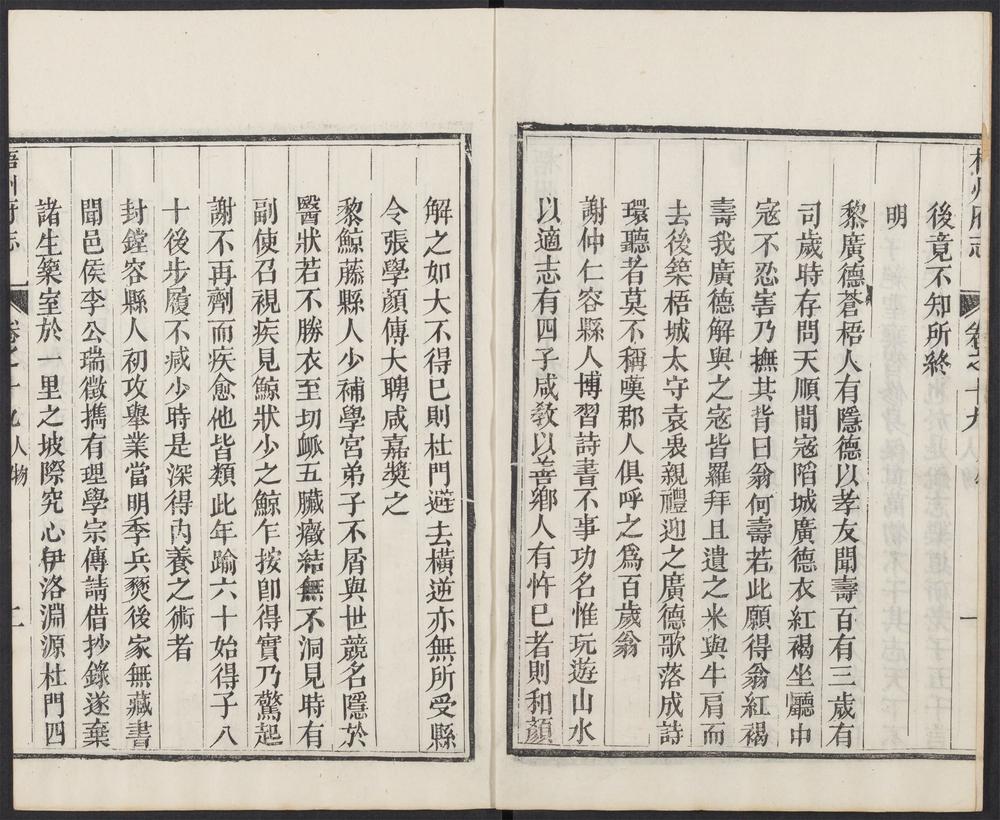 梧州府志
卷之十九
人物
一
後竟不知所終
明
黎廣德蒼梧人有隱德以孝友聞壽百有三歲有
司歲時存問天順間寇陷城廣德衣紅褐坐廳中
寇不忍害乃撫其背曰翁何壽若此願得翁紅褐
壽我廣德解與之寇皆羅拜且遺之米與牛肩而
去後築梧城太守袁衷親禮迎之廣德歌落成詩
環聽者莫不稱嘆郡人俱呼之爲百歲翁
謝仲仁容縣人博習詩書不事功名惟玩遊山水
以適志有四子咸敎以善鄉人有忤已者則和顏
解之如大不得已則杜門避去橫逆亦無所受縣
令張學顏傳大聘咸嘉獎之
黎鯨藤縣人少補學宮弟子不屑與世競名隱於
醫狀若不勝衣至切衇五臟癥結無不洞見時有
副使召視疾見鯨狀少之鯨乍按卽得實乃驚起
謝不再劑而疾愈他皆類此年踰六十始得子八
十後步履不减少時是深得內養之術者
封鏜容縣人初攻舉業當明季兵燹後家無藏書
聞邑侯李公瑞徵攜有理學宗傳請借抄錄遂棄
諸生築室於一里之坡際究心伊洛淵源杜門四
梧州府志
卷之十九人物
二